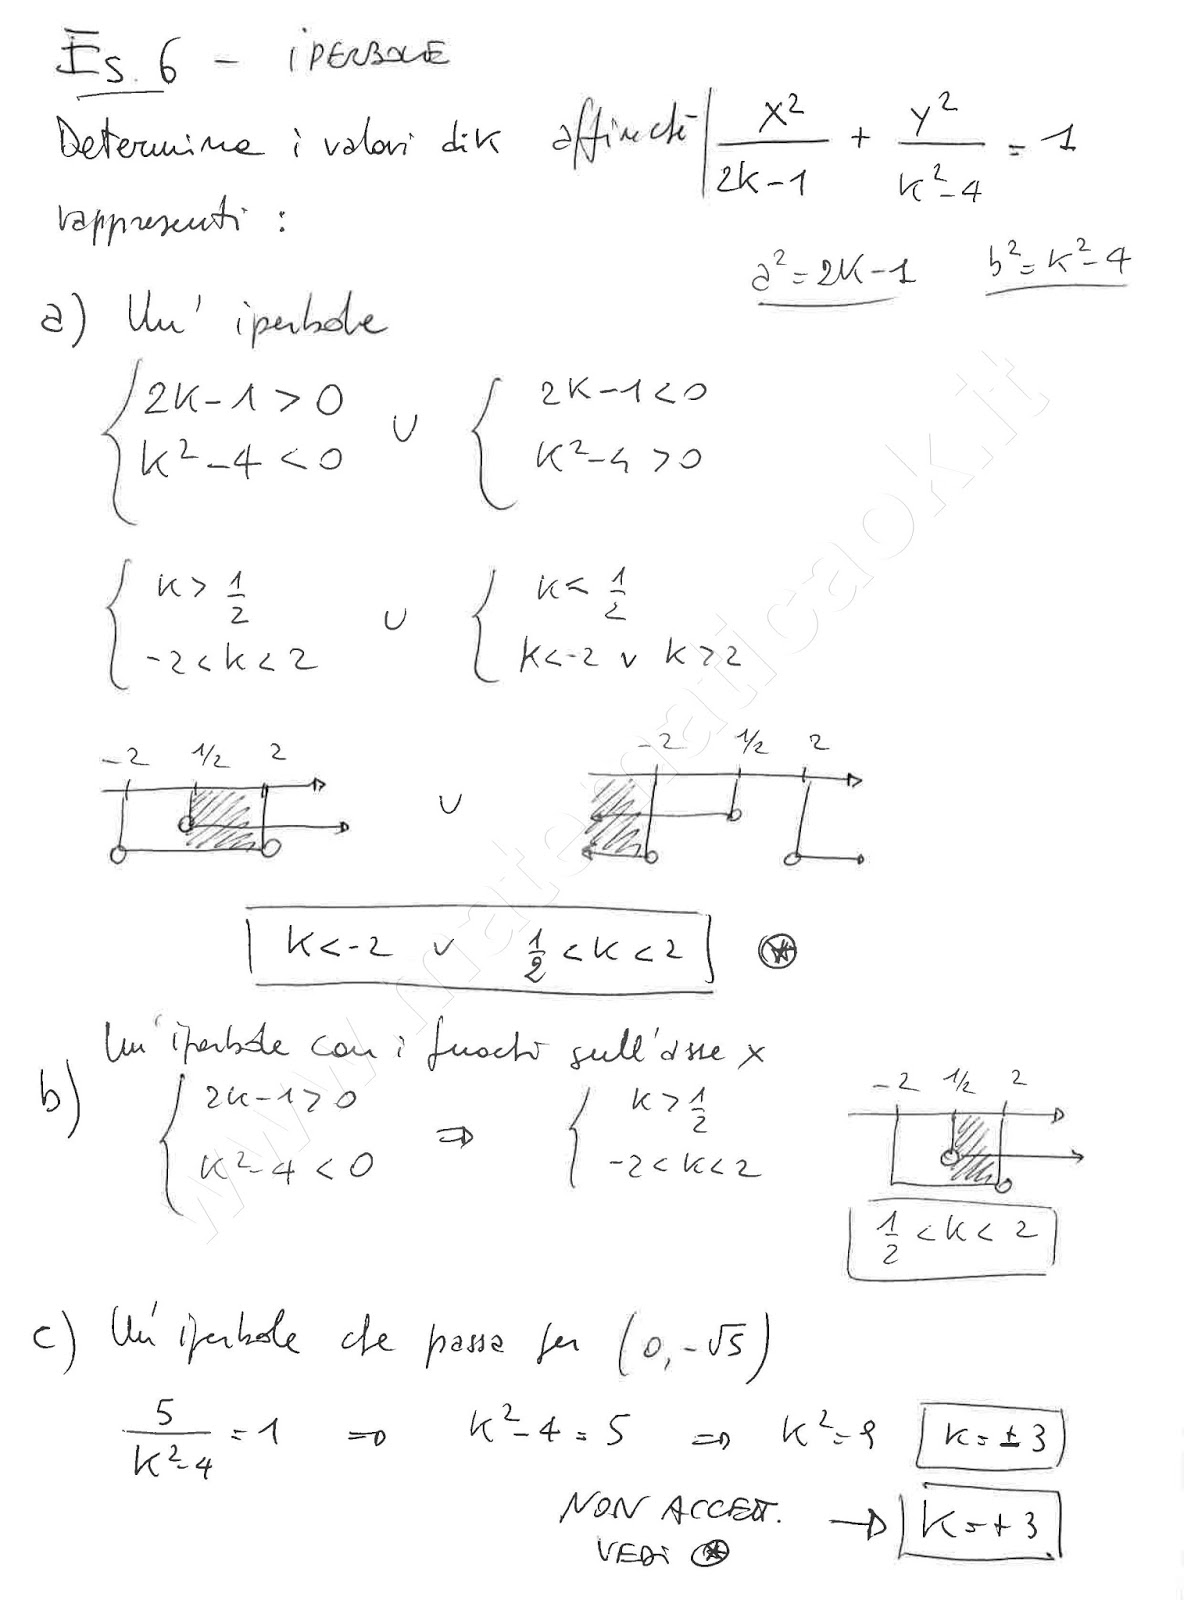 Es. 6 - IPERBOLE
Determina i valori di k affinché | x²/(2k-1) + y²/(k²-4) = 1
rappresenti :
a² = 2k-1 b² = k²-4
a) Un' iperbole
{ 2k-1>0 ∪ { 2k-1<0
{ k²-4<0 { k²-4>0
{ k > 1/2 ∪ { k < 1/2
{ -2<k<2 { k<-2 ∨ k>2
-2 1/2 2 ∪ -2 1/2 2
k<-2 ∨ 1/2 < k < 2 ⍟
b) Un'iperbole con i fuochi sull'asse x
{ 2k-1>0 ⇒ { k > 1/2 -2 1/2 2
{ k²-4<0 { -2<k<2
1/2 < k < 2
c) Un'iperbole che passa per (0,-√5)
5/(k²-4) = 1 ⇒ k²-4=5 ⇒ k²=9 k=±3
NON ACCETT. → k=+3
VEDI ⍟
www.matematicaok.it